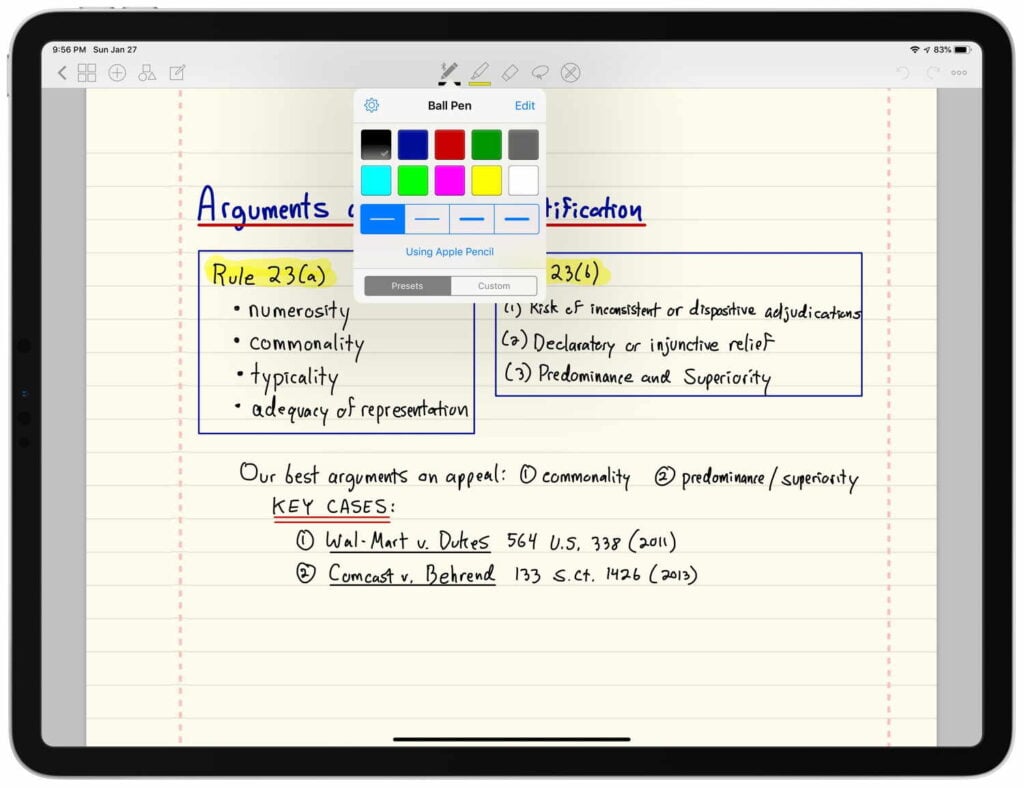 9:56 PM Sun Jan 27
83%
Ball Pen
Edit
Using Apple Pencil
Presets
Custom
Arguments tification
Rule 23(a)
• numerosity
• commonality
• typicality
• adequacy of representation
23(b)
(1) Risk of inconsistent or dispositive adjudications
(2) Declaratory or injunctive relief
(3) Predominance and Superiority
Our best arguments on appeal: ① commonality ② predominance/superiority
KEY CASES:
① Wal-Mart v. Dukes 564 U.S. 338 (2011)
② Comcast v. Behrend 133 S.Ct. 1426 (2013)